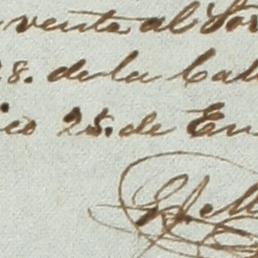 venta al
8. de la Cal
ico 25. de En